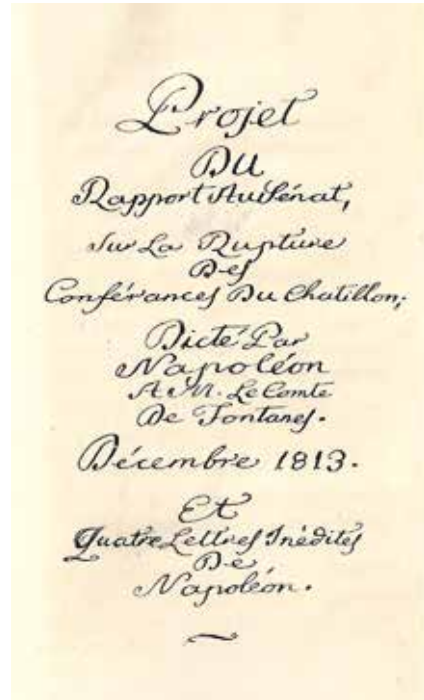 Projet
Du
Rapport Au Sénat,
Sur La Rupture
Des
Conférances Du Chatillon;
Dicté Par
Napoléon
A M. Le Comte
De Fontanes.
Décembre 1813.
Et
Quatre Lettres Inédites
De
Napoléon.